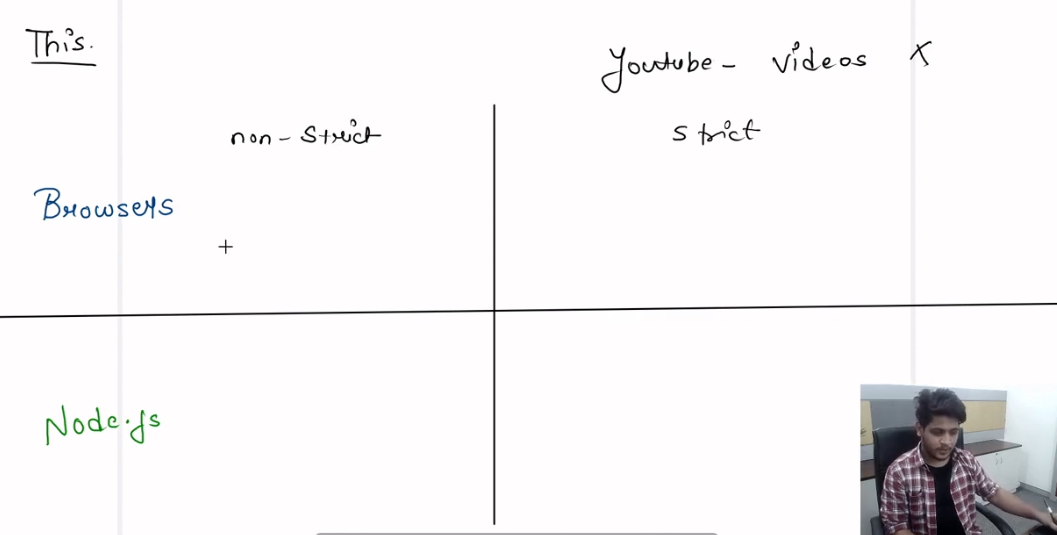 This.
Youtube - videos X
non - Strict
strict
Browsers
Node.js